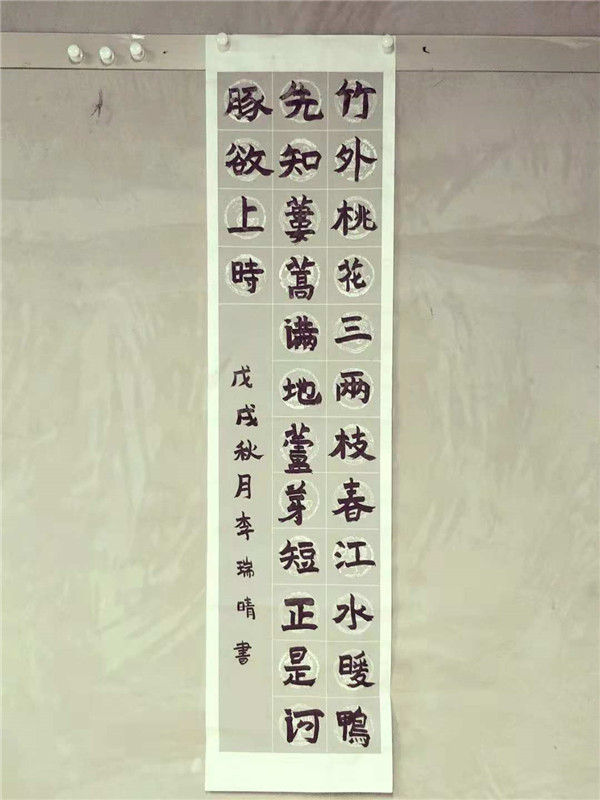 竹外桃花三兩枝春江水暖鴨
先知蔞蒿满地蘆芽短正是河
豚欲上時
戊戌秋月李瑞晴書